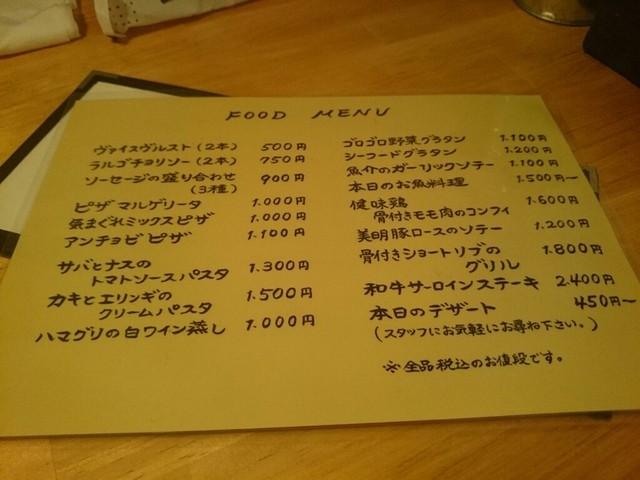 FOOD MENU
ヴァイスヴルスト(2本) 500円
ラルゴチョリソー(2本) 750円
ソーセージの盛り合わせ 900円
(3種)
ピザ マルゲリータ 1.000円
気まぐれミックスピザ 1.000円
アンチョビ ピザ 1.100円
サバとナスの
トマトソースパスタ 1.300円
カキとエリンギの
クリームパスタ 1.500円
ハマグリの白ワイン蒸し 1.000円
ゴロゴロ野菜グラタン 1.100円
シーフードグラタン 1.200円
魚介のガーリックソテー 1.100円
本日のお魚料理 1.500～
健味鶏
骨付きモモ肉のコンフィ 1.600円
美明豚ロースのソテー 1.200円
骨付きショートリブの
グリル 1.800円
和牛サーロインステーキ 2.400円
本日のデザート 450円～
(スタッフにお気軽にお尋ね下さい。)
※全品税込のお値段です。